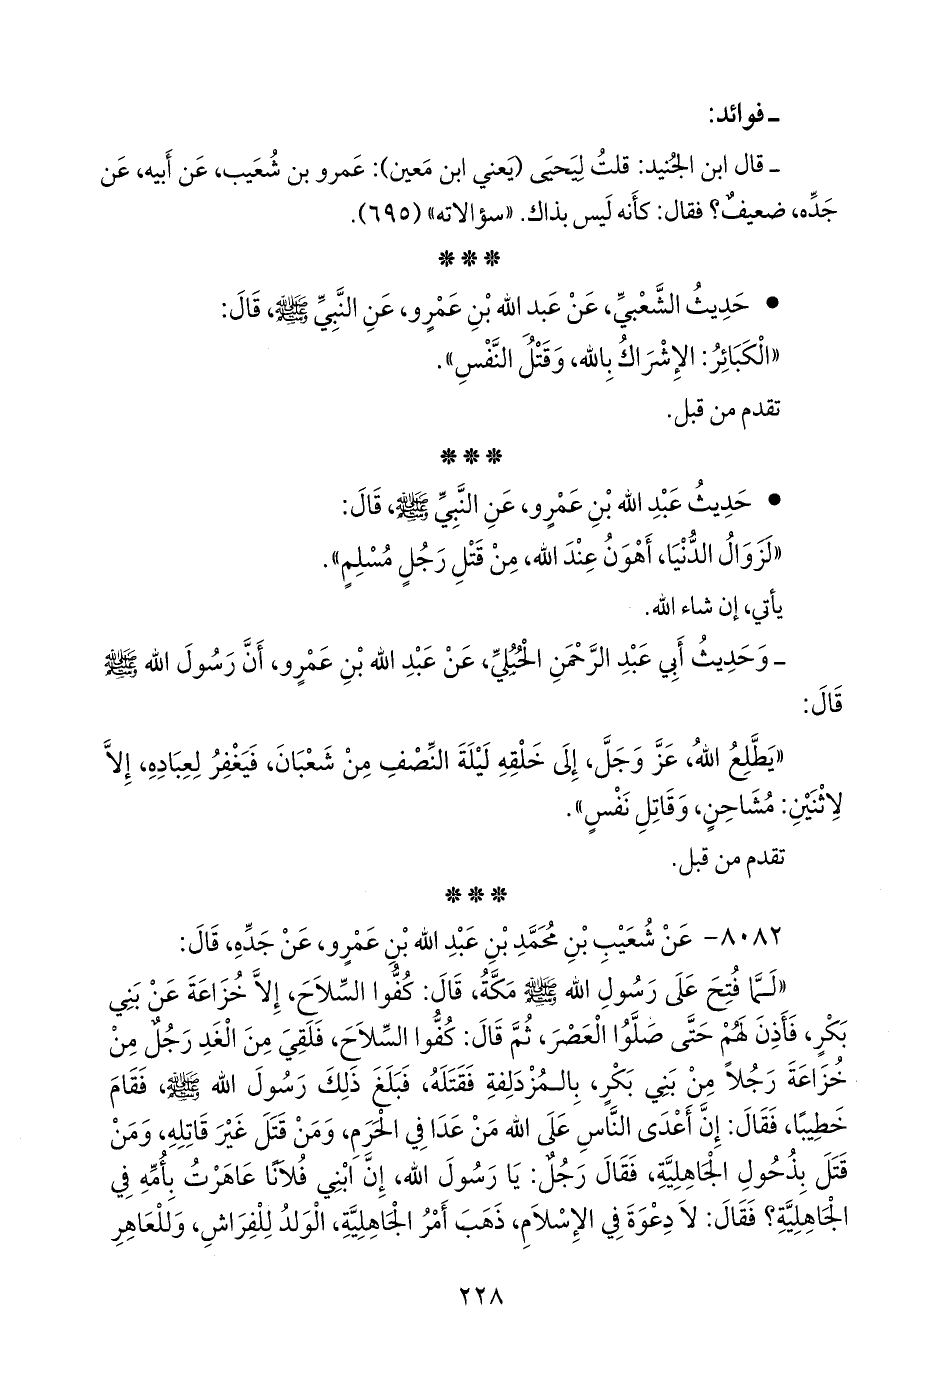 ـ فوائد:
ـ قال ابن الجُنيد: قلتُ لِيَحيَى (يَعني ابن مَعين): عَمرو بن شُعَيب، عَن أَبيه، عَن
جَدِّه، ضعيفٌ؟ فقال: كأَنه لَيس بذاك. «سؤالاته» (٦٩٥).
***
• حَدِيثُ الشَّعْبِيِّ، عَنْ عَبد الله بْنِ عَمْرٍو، عَنِ النَّبِيِّ ﷺ، قَالَ:
«الْكَبَائِرُ: الإِشْرَاكُ بِالله، وَقَتْلُ النَّفْسِ».
تقدم من قبل.
***
• حَدِيثُ عَبْدِ الله بْنِ عَمْرٍو، عَنِ النَّبِيِّ ﷺ، قَالَ:
«لَزَوَالُ الدُّنْيَا، أَهْوَنُ عِنْدَ الله، مِنْ قَتْلِ رَجُلٍ مُسْلِمٍ».
يأتي، إن شاء الله.
ـ وَحَدِيثُ أَبِي عَبْدِ الرَّحْمَنِ الْحُبُلِيِّ، عَنْ عَبْدِ الله بْنِ عَمْرٍو، أَنَّ رَسُولَ الله ﷺ
قَالَ:
«يَطَّلِعُ اللهُ، عَزَّ وَجَلَّ، إِلَى خَلْقِهِ لَيْلَةَ النِّصْفِ مِنْ شَعْبَانَ، فَيَغْفِرُ لِعِبَادِهِ، إِلاَّ
لاِثْنَيْنِ: مُشَاحِنٍ، وَقَاتِلِ نَفْسٍ».
تقدم من قبل.
***
٨٠٨٢- عَنْ شُعَيْبِ بْنِ مُحَمَّدِ بْنِ عَبْدِ الله بْنِ عَمْرٍو، عَنْ جَدِّهِ، قَالَ:
«لَـمَّا فُتِحَ عَلَى رَسُولِ الله ﷺ مَكَّةُ، قَالَ: كُفُّوا السِّلاَحَ، إِلاَّ خُزَاعَةَ عَنْ بَنِي
بَكْرٍ، فَأَذِنَ لَهُمْ حَتَّى صَلَّوُا الْعَصْرَ، ثُمَّ قَالَ: كُفُّوا السِّلاَحَ، فَلَقِيَ مِنَ الْغَدِ رَجُلٌ مِنْ
خُزَاعَةَ رَجُلاً مِنْ بَنِي بَكْرٍ، بِالـمُزْدَلِفةِ فَقَتَلَهُ، فَبَلَغَ ذَلِكَ رَسُولَ الله ﷺ، فَقَامَ
خَطِيبًا، فَقَالَ: إِنَّ أَعْدَى النَّاسِ عَلَى الله مَنْ عَدَا فِي الْحَرَمِ، وَمَنْ قَتَلَ غَيْرَ قَاتِلِهِ، وَمَنْ
قَتَلَ بِذُحُولِ الْجَاهِلِيَّةِ، فَقَالَ رَجُلٌ: يَا رَسُولَ الله، إِنَّ ابْنِي فُلاَنًا عَاهَرْتُ بِأُمِّهِ فِي
الْجَاهِلِيَّةِ؟ فَقَالَ: لاَ دِعْوَةَ فِي الإِسْلاَمِ، ذَهَبَ أَمْرُ الْجَاهِلِيَّةِ، الْوَلَدُ لِلْفِرَاشِ، وَلِلْعَاهِرِ
٢٢٨